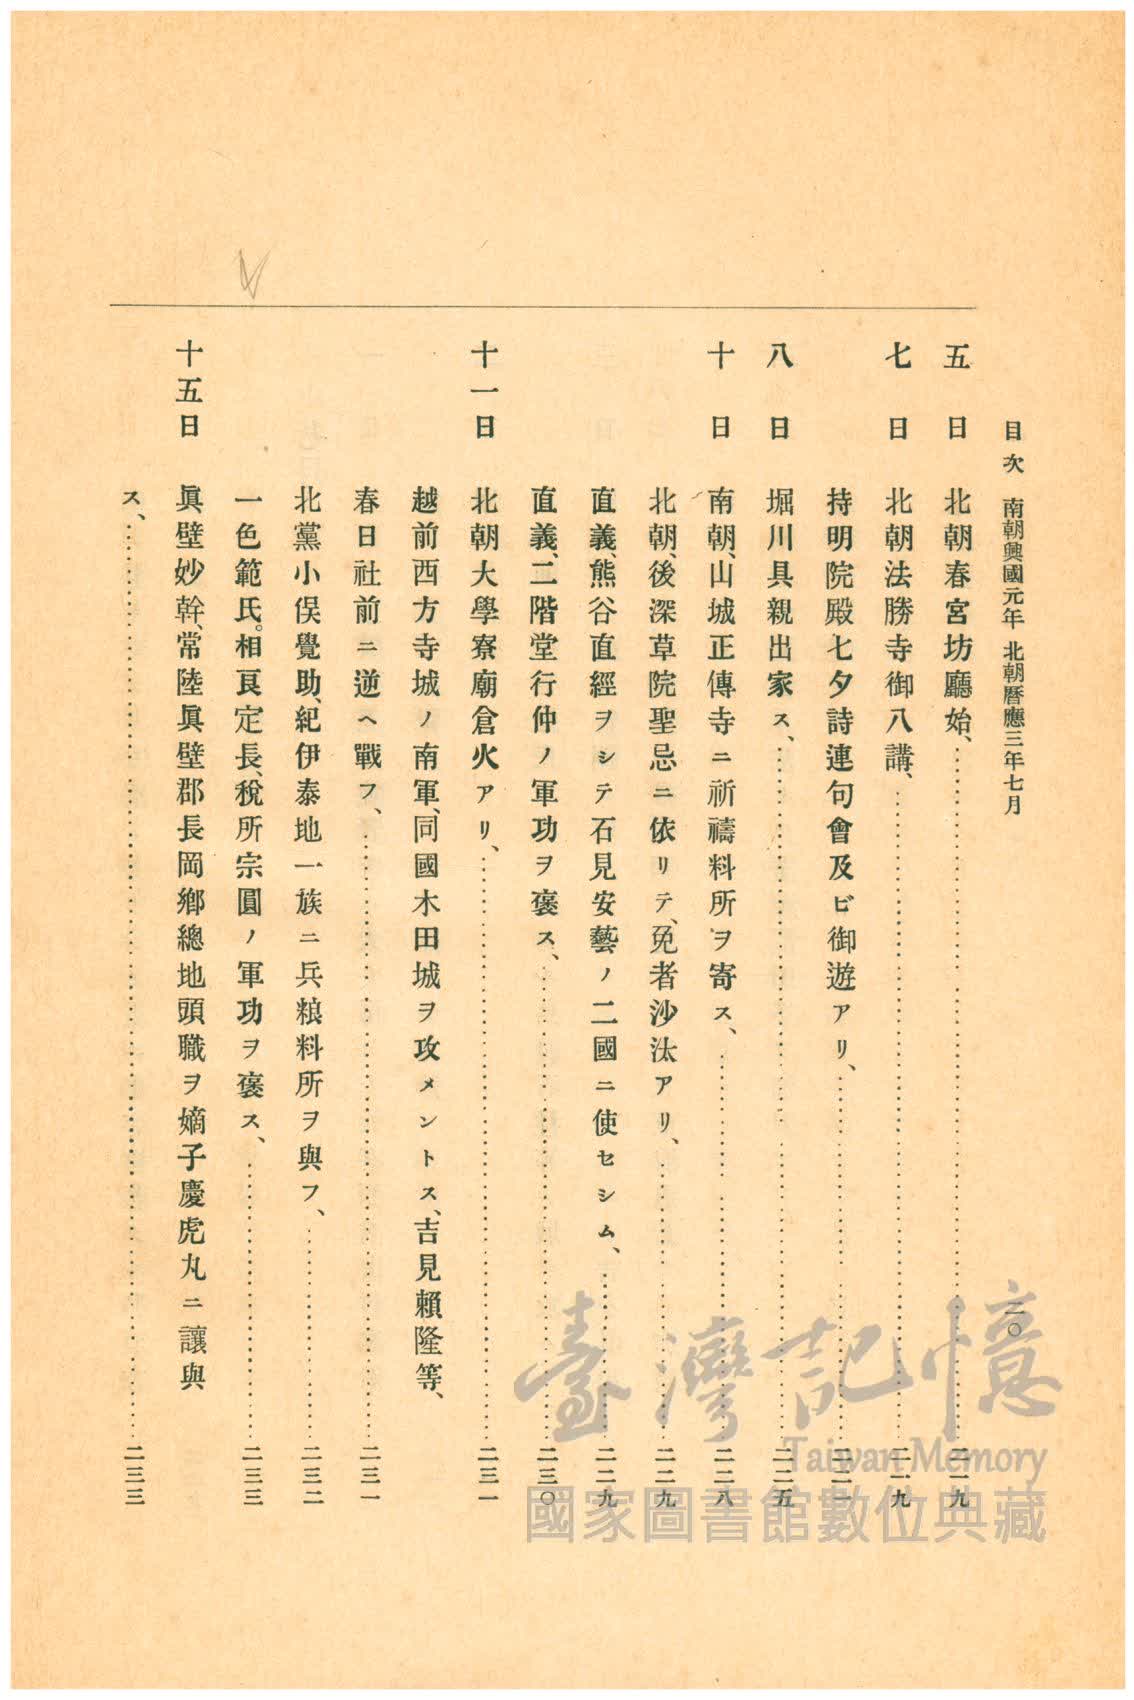 目次　南朝興國元年　北朝曆應三年七月　二〇
五日　北朝春宮坊廳始、…………二一九
七日　北朝法勝寺御八講、…………二一九
持明院殿七夕詩連句會及ビ御遊アリ、…………二二一
八日　堀川具親出家ス、…………二二五
十日　南朝、山城正傳寺ニ祈禱料所ヲ寄ス、…………二二八
北朝、後深草院聖忌ニ依リテ、免者沙汰アリ、…………二二九
直義、熊谷直經ヲシテ石見安藝ノ二國ニ使セシム、…………二二九
直義、二階堂行仲ノ軍功ヲ褒ス、…………二三〇
十一日　北朝大學寮廟倉火アリ、…………二三一
越前西方寺城ノ南軍、同國木田城ヲ攻メントス、吉見賴隆等、
春日社前ニ逆ヘ戰フ、…………二三一
北黨小俣覺助、紀伊泰地一族ニ兵粮料所ヲ與フ、…………二三二
一色範氏。相良定長、稅所宗圓ノ軍功ヲ褒ス、…………二三三
十五日　眞壁妙幹、常陸眞壁郡長岡鄕總地頭職ヲ嫡子慶虎丸ニ讓與
ス、…………二三三
臺灣記憶
Taiwan Memory
國家圖書館數位典藏